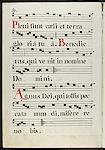 Pleni sunt cæli et terra
gloria tu a. Benedic
tus, qui ve nit in nomine
Do mini.
Agnus Dei, qui tollis pec
cata mun di, misere re
no bis.